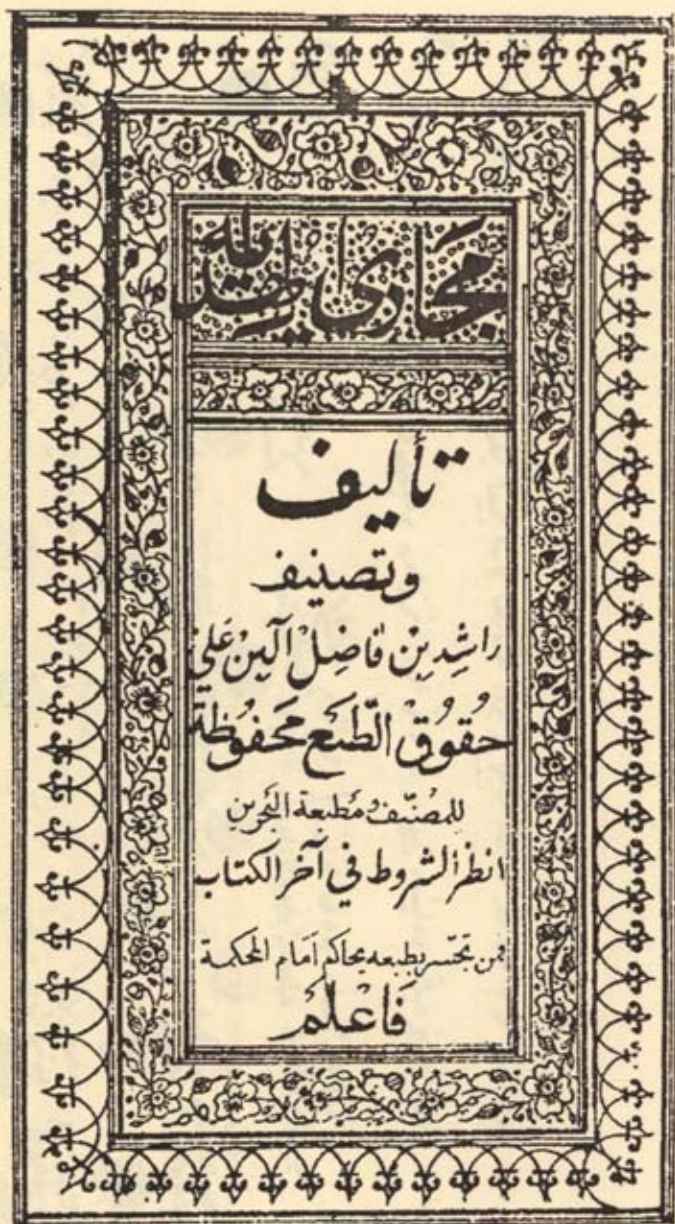 مجاري الهداية
تأليف
وتصنيف
راشد بن فاضل آلبن علي
حُقُوق الطَّبع مَحفُوظة
للمصنّف ومطبعة البحرين
انظر الشروط في آخر الكتاب
فمن تجسّر بطبعه يحاكم امام المحكمة
فَاعْلَم